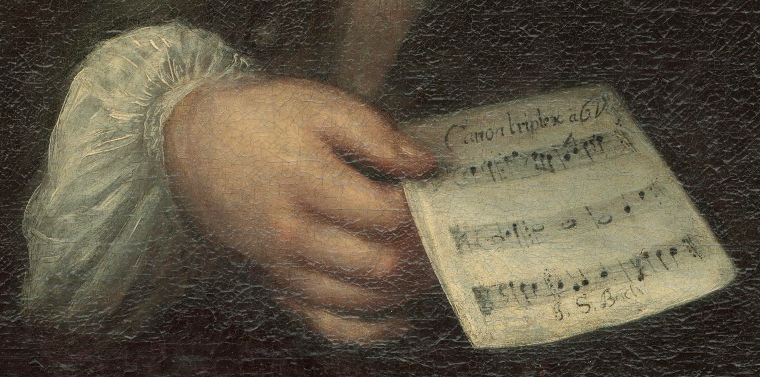 Canon triplex a 6 V.
J. S. Bach